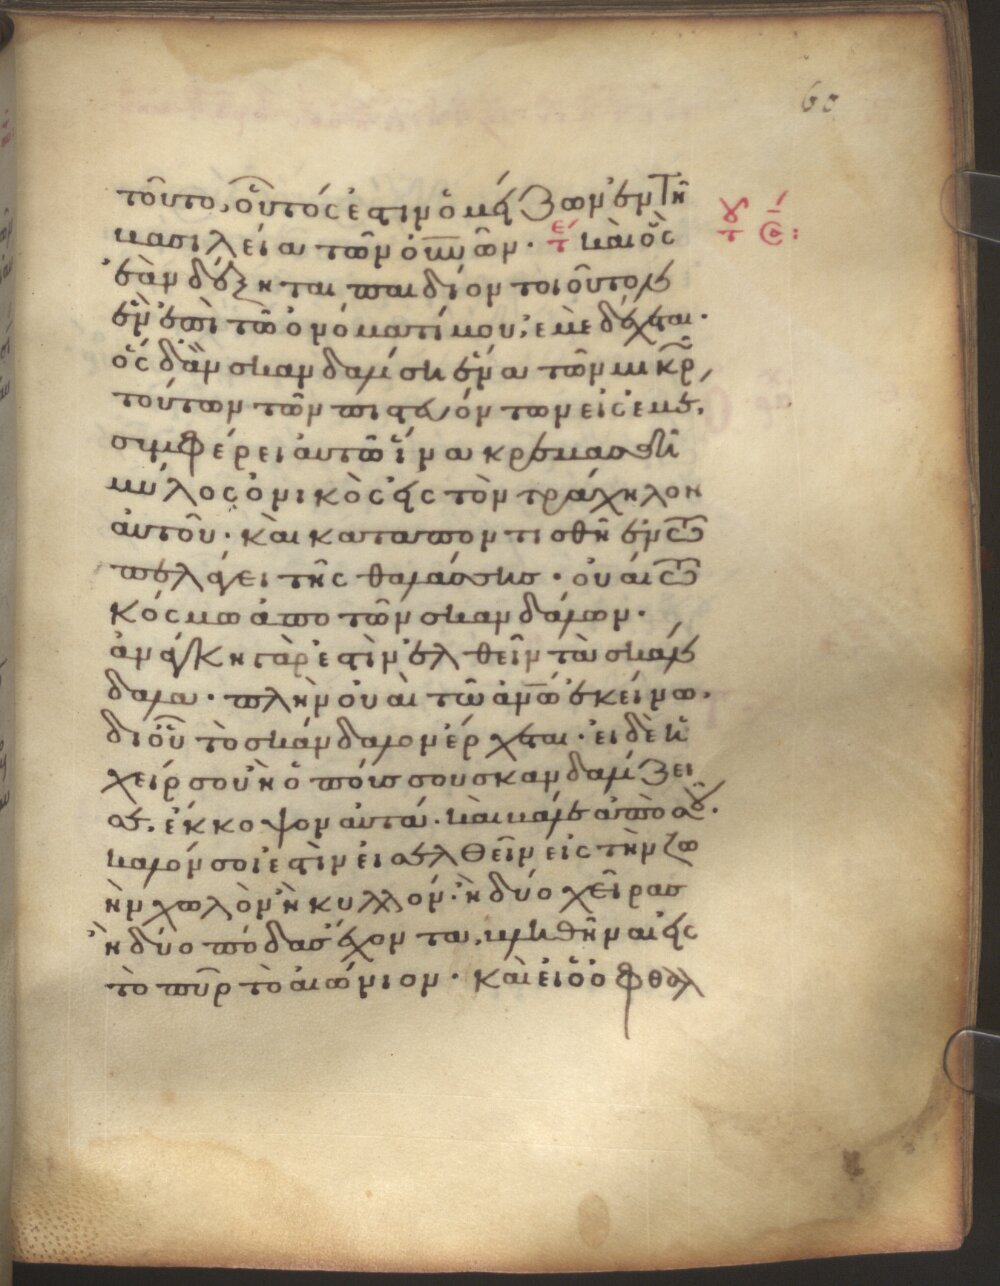 60
τοῦτο, οὗτός ἐστιν ὁ μείζων ἐν τῆ
βασιλεία τῶν οὐνῶν · καὶ ὃς
ἐὰν δέξηται παιδίον τοιοῦτον
ἓν ἐπὶ τῶ ὀνόματί μου, ἐμὲ δέχεται ·
ὃς δ' ἂν σκανδαλίση ἕνα τῶν μικρ
τούτων τῶν πιστευόντων εἰς ἐμέ,
συμφέρει αὐτῶ ἵνα κρεμασθῆ
μύλος ὀνικὸς εἰς τὸν τράχηλον
αὐτοῦ · καὶ καταποντισθῆ ἐν τῶ
πελάγει τῆς θαλάσσης · οὐαὶ τῶ
κόσμω ἀπὸ τῶν σκανδάλων ·
ἀνάγκη γάρ ἐστιν ἐλθεῖν τὰ σκάν
δαλα · πλὴν οὐαὶ τῶ ἀνω ἐκείνω ·
δι' οὗ τὸ σκάνδαλον ἔρχεται · εἰ δὲ ἡ
χείρ σου ἢ ὁ πόυς σου σκανδαλίζει
σε, ἔκκοψον αὐτά · καὶ βάλε ἀπὸ σοῦ ·
καλόν σοι ἐστὶν εἰσελθεῖν εἰς τὴν ζω
ὴν χωλὸν ἢ κυλλόν · ἢ δύο χεῖρας
ἢ δύο πόδας ἔχοντα, βληθῆναι εἰς
τὸ πῦρ τὸ αἰώνιον · καὶ εἰ ὁ ὀφθαλ